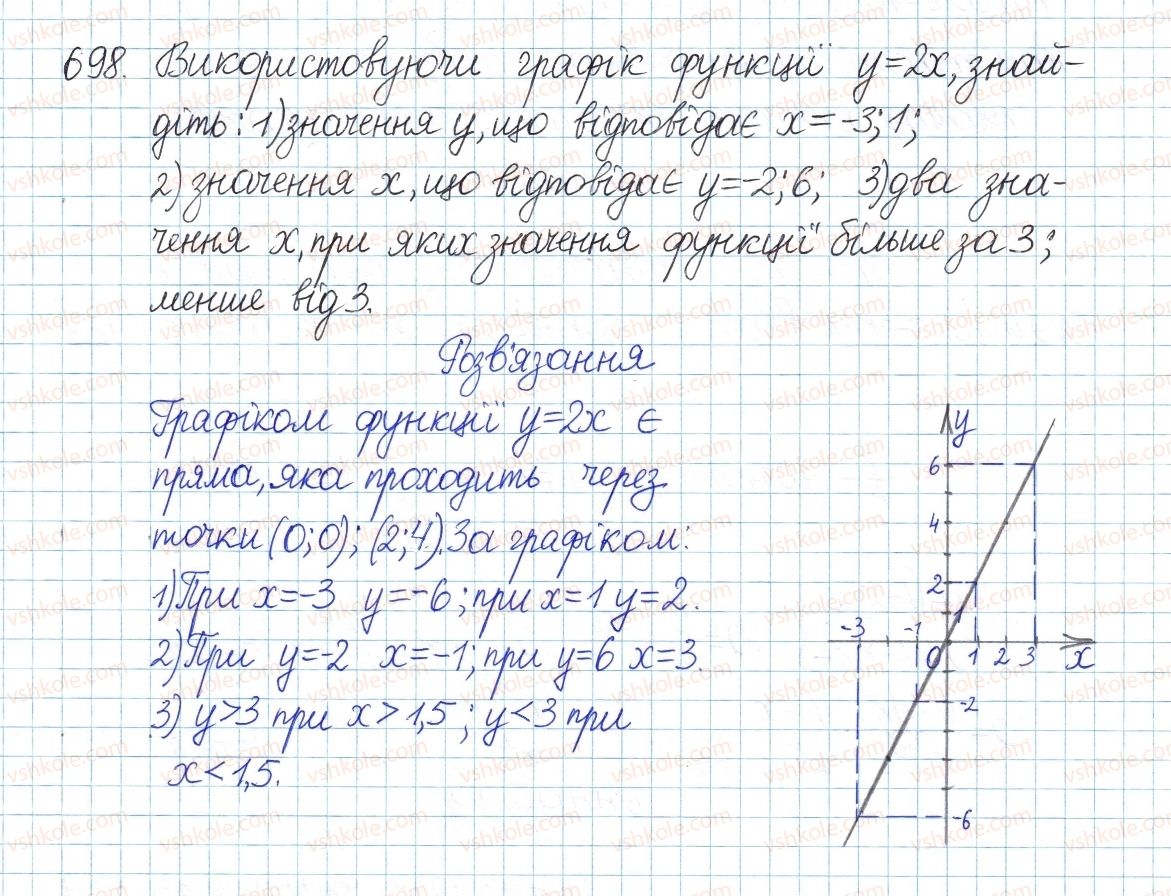 698. Використовуючи графік функції y=2x, знай-
діть: 1) значення y, що відповідає x=-3; 1;
2) значення x, що відповідає y=-2; 6; 3) два зна-
чення x, при яких значення функції більше за 3;
менше від 3.
Розв'язання
Графіком функції y=2x є
пряма, яка проходить через
точки (0;0); (2;4). За графіком:
1) При x=-3 y=-6; при x=1 y=2.
2) При y=-2 x=-1; при y=6 x=3.
3) y>3 при x>1,5; y<3 при
x<1,5.
y
6
4
2
1
-3 -1
0 1 2 3 x
-2
-6
vshkole.com